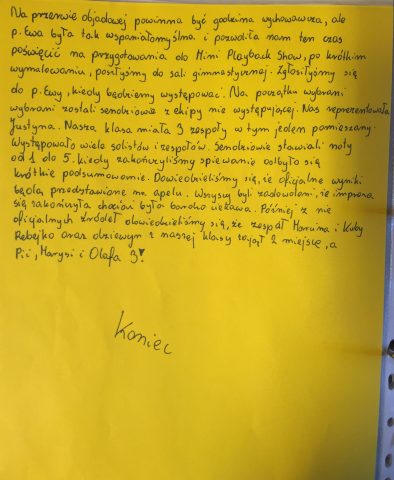 Na przerwie objadowej powinna być godzina wychowawcza, ale
p. Ewa była tak wspaniałomyślna i pozwoliła nam ten czas
poświęcić na przygotowania do Mini Playback Show, po krótkim
wymalowaniu, poszłyśmy do sali gimnastycznej. Zgłosiłyśmy się
do p. Ewy, kiedy będziemy występować. Na początku wybrani
wybrani zostali sendziowie z ekipy nie występującej. Nas reprezentowała
Justyna. Nasza klasa miała 3 zespoły w tym jeden pomieszany.
Występowało wiele solistów i zespołów. Sendziowie stawiali noty
od 1 do 5. kiedy zakończyliśmy śpiewanie odbyło się
krótkie podsumowanie. Dowiedzieliśmy się, ie oficjalne wyniki
będą przedstawione na apelu. Wszyscy byli zadowoleni, ie impreza
się zakończyła chociarz było bardzo ciekawa. Później z nie
oficjalnych źródeł dowiedzieliśmy się, że zespół Marcina i Kuby
Rebejko oraz dziewyn z naszej klasy zajął 2 miejsce, a
Pii, Marysi i Olafa 3!
Koniec